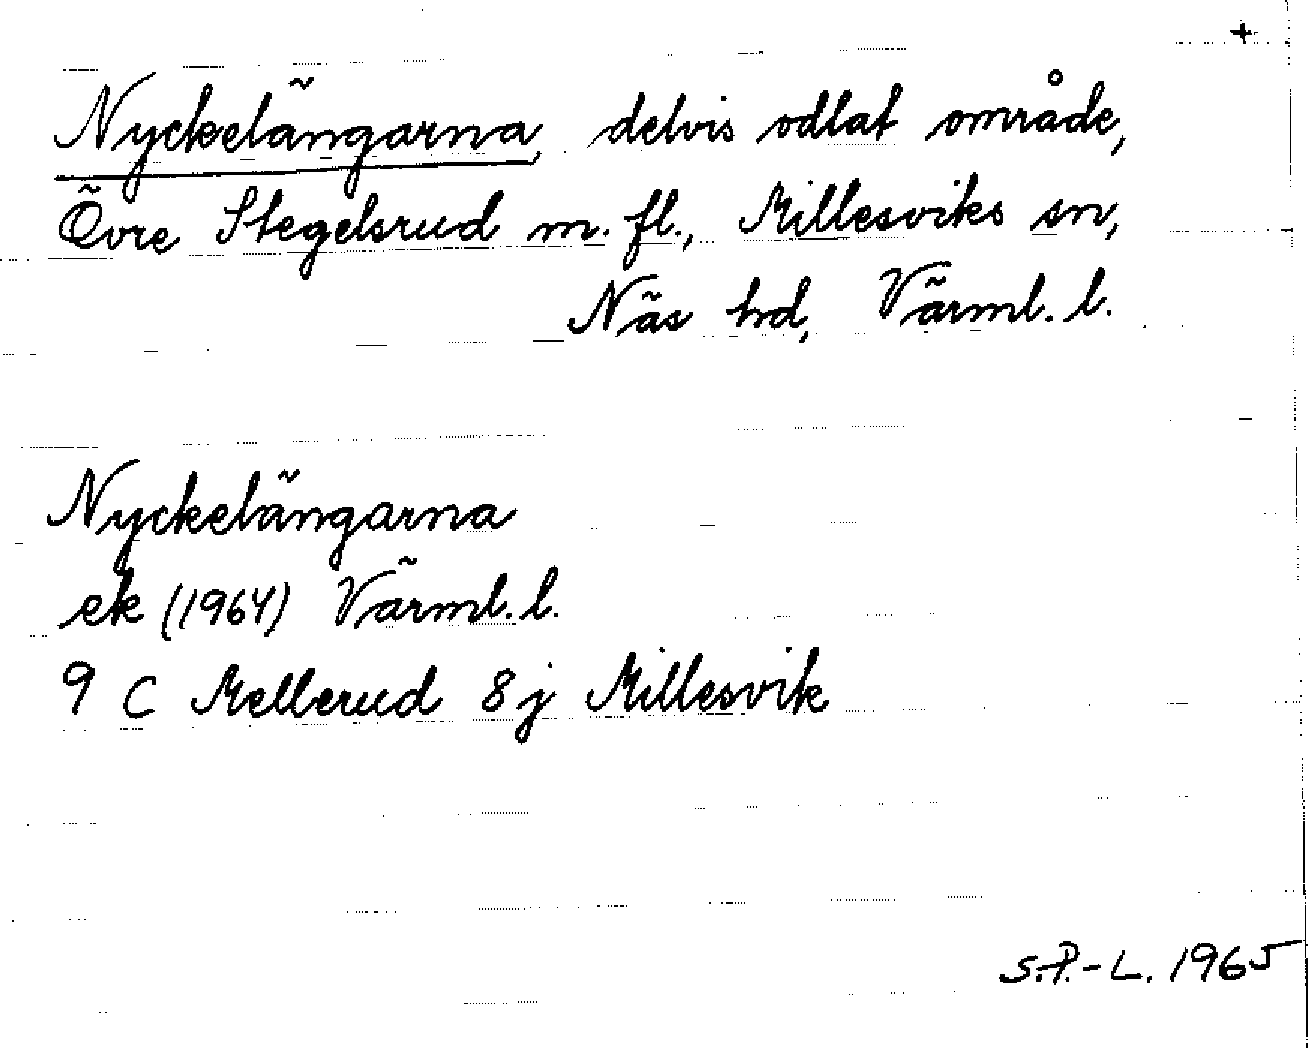 +
Nyckelängarna, delvis odlat område,
Övre Stegelsrud m. fl., Millesviks sn,
Näs hd, Värml. l.
Nyckelängarna
ek (1964) Värml. l.
9 C Mellerud 8 j Millesvik
S.P.-L. 1965